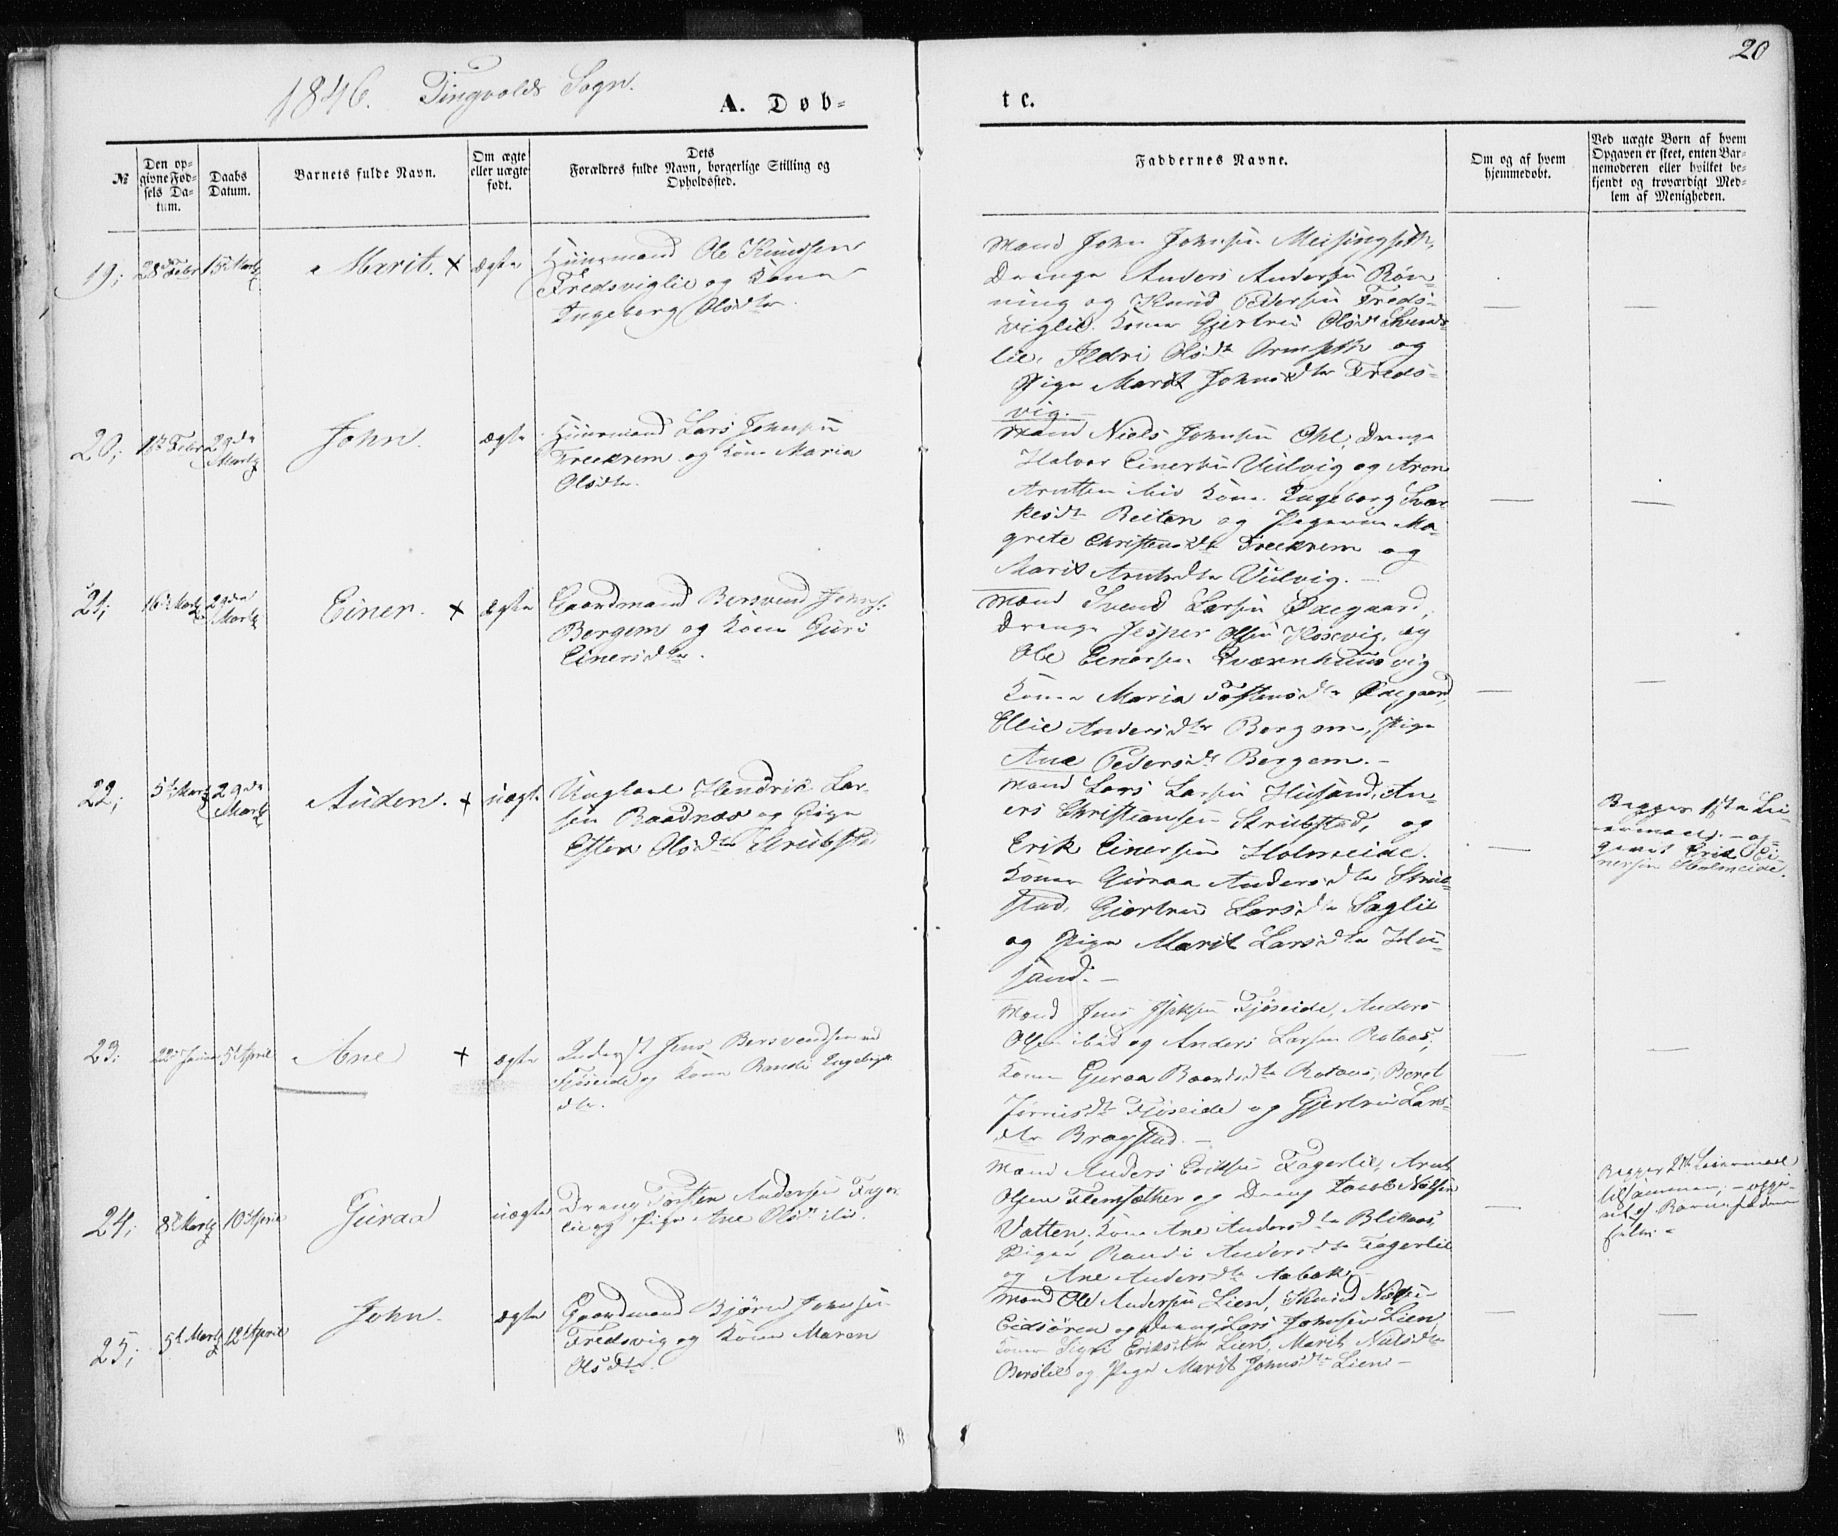 20
1846. Tingvolds Sogn.
A. Døb=
te.
№
Den op=
givne Fød=
sels Da=
tum.
Daabs
Datum.
Barnets fulde Navn.
Om ægte
eller uægte
født.
Dets
Forældres fulde Navn, borgerlige Stilling og
Opholdssted.
Faddernes Navne.
Om og af hvem
hjemmedøbt.
Ved uægte Børn af hvem
Opgaven er skeet, enten Bar=
nemoderen eller hvilket be=
kjendt og troværdigt Med=
lem af Menigheden.
19; 28de Febr 15de Martz Marit. × ægte
Huusmand Ole Knudsen
Fredsviglie og Kone
Ingeborg Olsdtr.
Mænd John Johnsen Meisingseth,
Drenge Anders Andersen Røn-
ning og Knud Pedersen Freds-
viglie. Koner Gjertru Olsdtr
lie, Ildri Olsdtr Ormseth og
Pige Marit Johnsdtr Freds-
vig.-
20; Febr 29de Martz John. ægte
Huusmand Lars Johnsen
Freekrem og Kone Maria
Olsdtr.
Mænd Niels Johnsen Ohl, Drenge
Halvor Einersen Vulvig og Aren
Arntsen ibid Kone Ingeborg
Reiten og Pigerne Ma-
grete Christensdtr Freekrem og
Marit Arntsdtr Vulvig.-
21; 16de Martz 29de Martz Einer. × ægte
Gaardmand Bersvend Johns.
Bergem og Kone Guri
Einersdtr.
Mænd Svend Larsen Øaegaard,
Drenge Jesper Olsen Kosevig, og
Ole Einersen Qværnhuusvig
Koner Maria Tostensdtr Øaegaard,
Ellie Andersdtr Bergem, Pige
Ane Pedersdtr Bergem.-
22; 5te Martz 29de Martz Auden. × uægte
Ungkarl Hendrik Lar-
sen Raadnæs og Pige
Ester Olsdtr Strubstad
Mænd Lars Larsen Husand, An-
ers Christiansen Strubstad, og
Erik Einersen Holmeide.
Koner Guraa Andersdtr Strub-
stad, Gjertru Larsdtr Saglie
og Pige Marit Larsdtr Hu-
sand.-
Begges 1ste Lei-
ermaal.- op-
givet Erik Ei-
nersen Holmeide.
23. 22de Januar 5te April Ane × ægte
Inderst Jens Bersvendsen ved
Fjøseide og Kone Randi Engebrigts
dtr.
Mænd Jens Fjøseide, Anders
Olsen ibid og Anders Larsen Rotaas,
Koner Guraa Baardsdtr Rotaas, Beret
Fjøseide og Gjertru Lars-
dtr Bragstad.-
24; 8de Martz 10de April Guraa uægte
Dreng Torsten Andersen Fager-
lie og Pige Ane Olsdtr ibid.
Mænd Anders Eriksen Fagerlie, Arnt
Olsen Flemsæther og Dreng Jacob Nielsen
Vatten, Kone Ane Andersdtr Blikaas,
Piger Randi Andersdtr Fagerlie
og Ane Andersdtr Aabak.-
Begges 2det Leiermaal
tilsammen;- opgi-
vet af Barnefaderen
selv.-
25; 5te Martz 12te April John. ægte
Gaardmand Bjørn Johnsen
Fredsvig og Kone Maren
Olsdtr.
Mænd Ole Andersen Lien, Knud Nilsen
Eidsøren og Dreng Lars Johnsen Lien,
Koner Eriksdtr Lien, Marit Nielsdtr
Berslie og Pige Marit Johnsdtr Lien.-